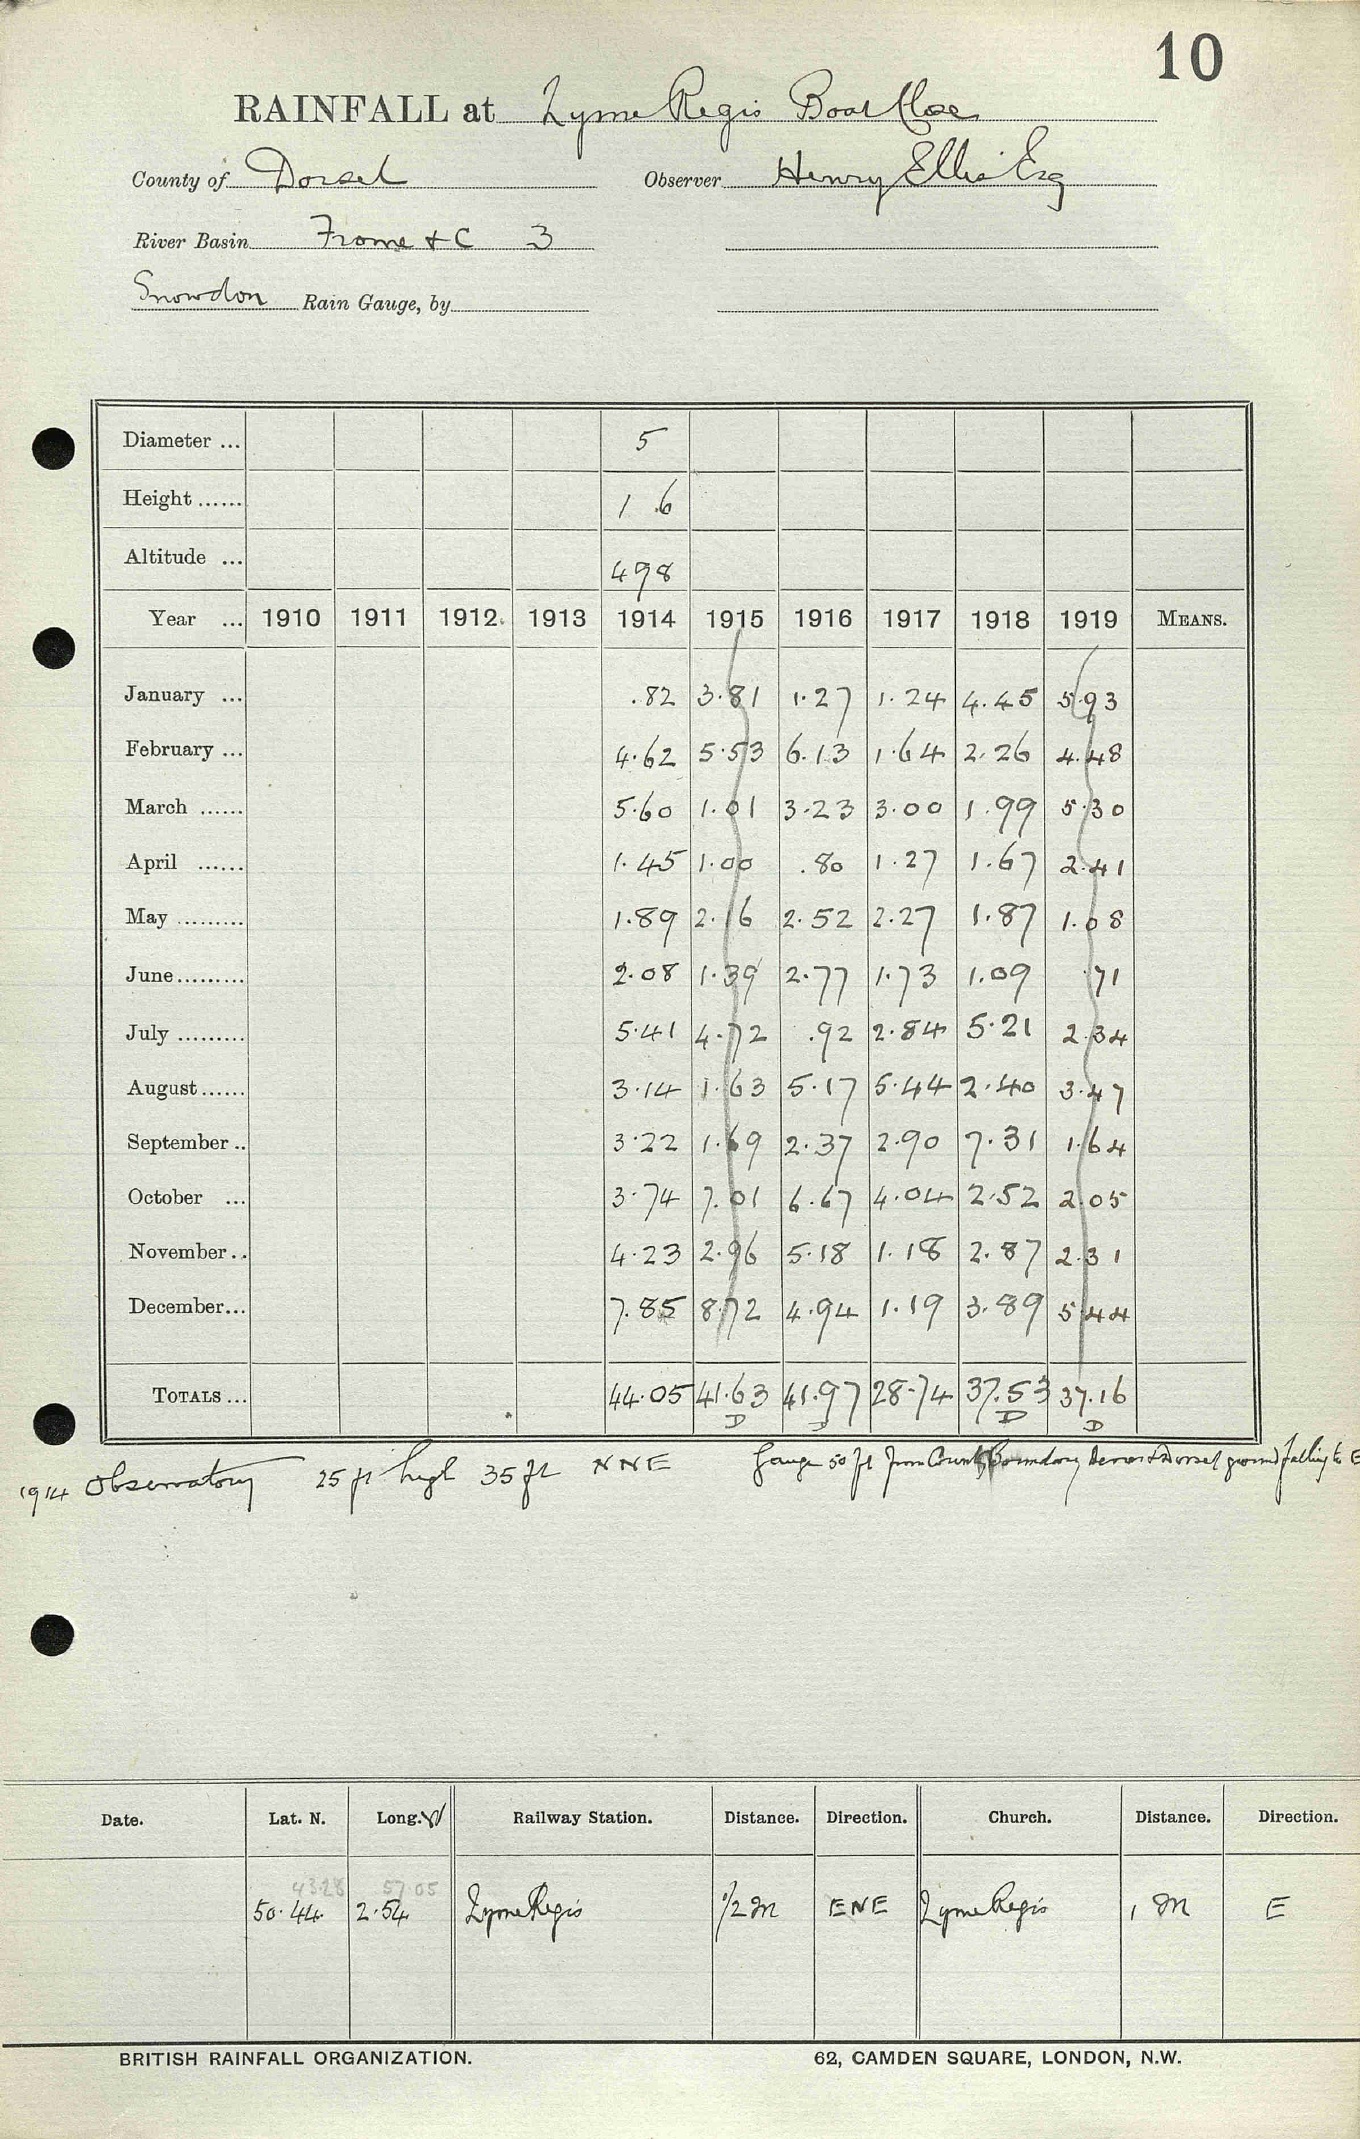 10
RAINFALL at Lyme Regis Boat Close
County of Dorset Observer Henry Ellis Esq
River Basin Frome & C 3
Snowdon Rain Gauge, by
Diameter ... 5
Height ...... 1 .6
Altitude ... 498
Year ... 1910 1911 1912 1913 1914 1915 1916 1917 1918 1919 MEANS.
January ... .82 3.81 1.27 1.24 4.45 5.93
February ... 4.62 5.53 6.13 1.64 2.26 4.48
March ...... 5.60 1.01 3.23 3.00 1.99 5.30
April ...... 1.45 1.00 .80 1.27 1.67 2.41
May ......... 1.89 2.16 2.52 2.27 1.87 1.08
June......... 2.08 1.39 2.77 1.73 1.09 .71
July ......... 5.41 4.72 .92 2.84 5.21 2.34
August...... 3.14 1.63 5.17 5.44 2.40 3.47
September .. 3.22 1.69 2.37 2.90 7.31 1.64
October ... 3.74 7.01 6.67 4.04 2.52 2.05
November .. 4.23 2.96 5.18 1.18 2.87 2.31
December... 7.85 8.72 4.94 1.19 3.89 5.44
TOTALS ... 44.05 41.63 41.97 28.74 37.53 37.16
D D D D
1914 Observatory 25 ft high 35 ft NNE Gauge 50 ft from County Boundary Devon & Dorset ground falling to E
Date. Lat. N. Long. W Railway Station. Distance. Direction. Church. Distance. Direction.
43.28 57 05
50.44 2.54 Lyme Regis 1/2 m ENE Lyme Regis 1 m E
BRITISH RAINFALL ORGANIZATION. 62, CAMDEN SQUARE, LONDON, N.W.